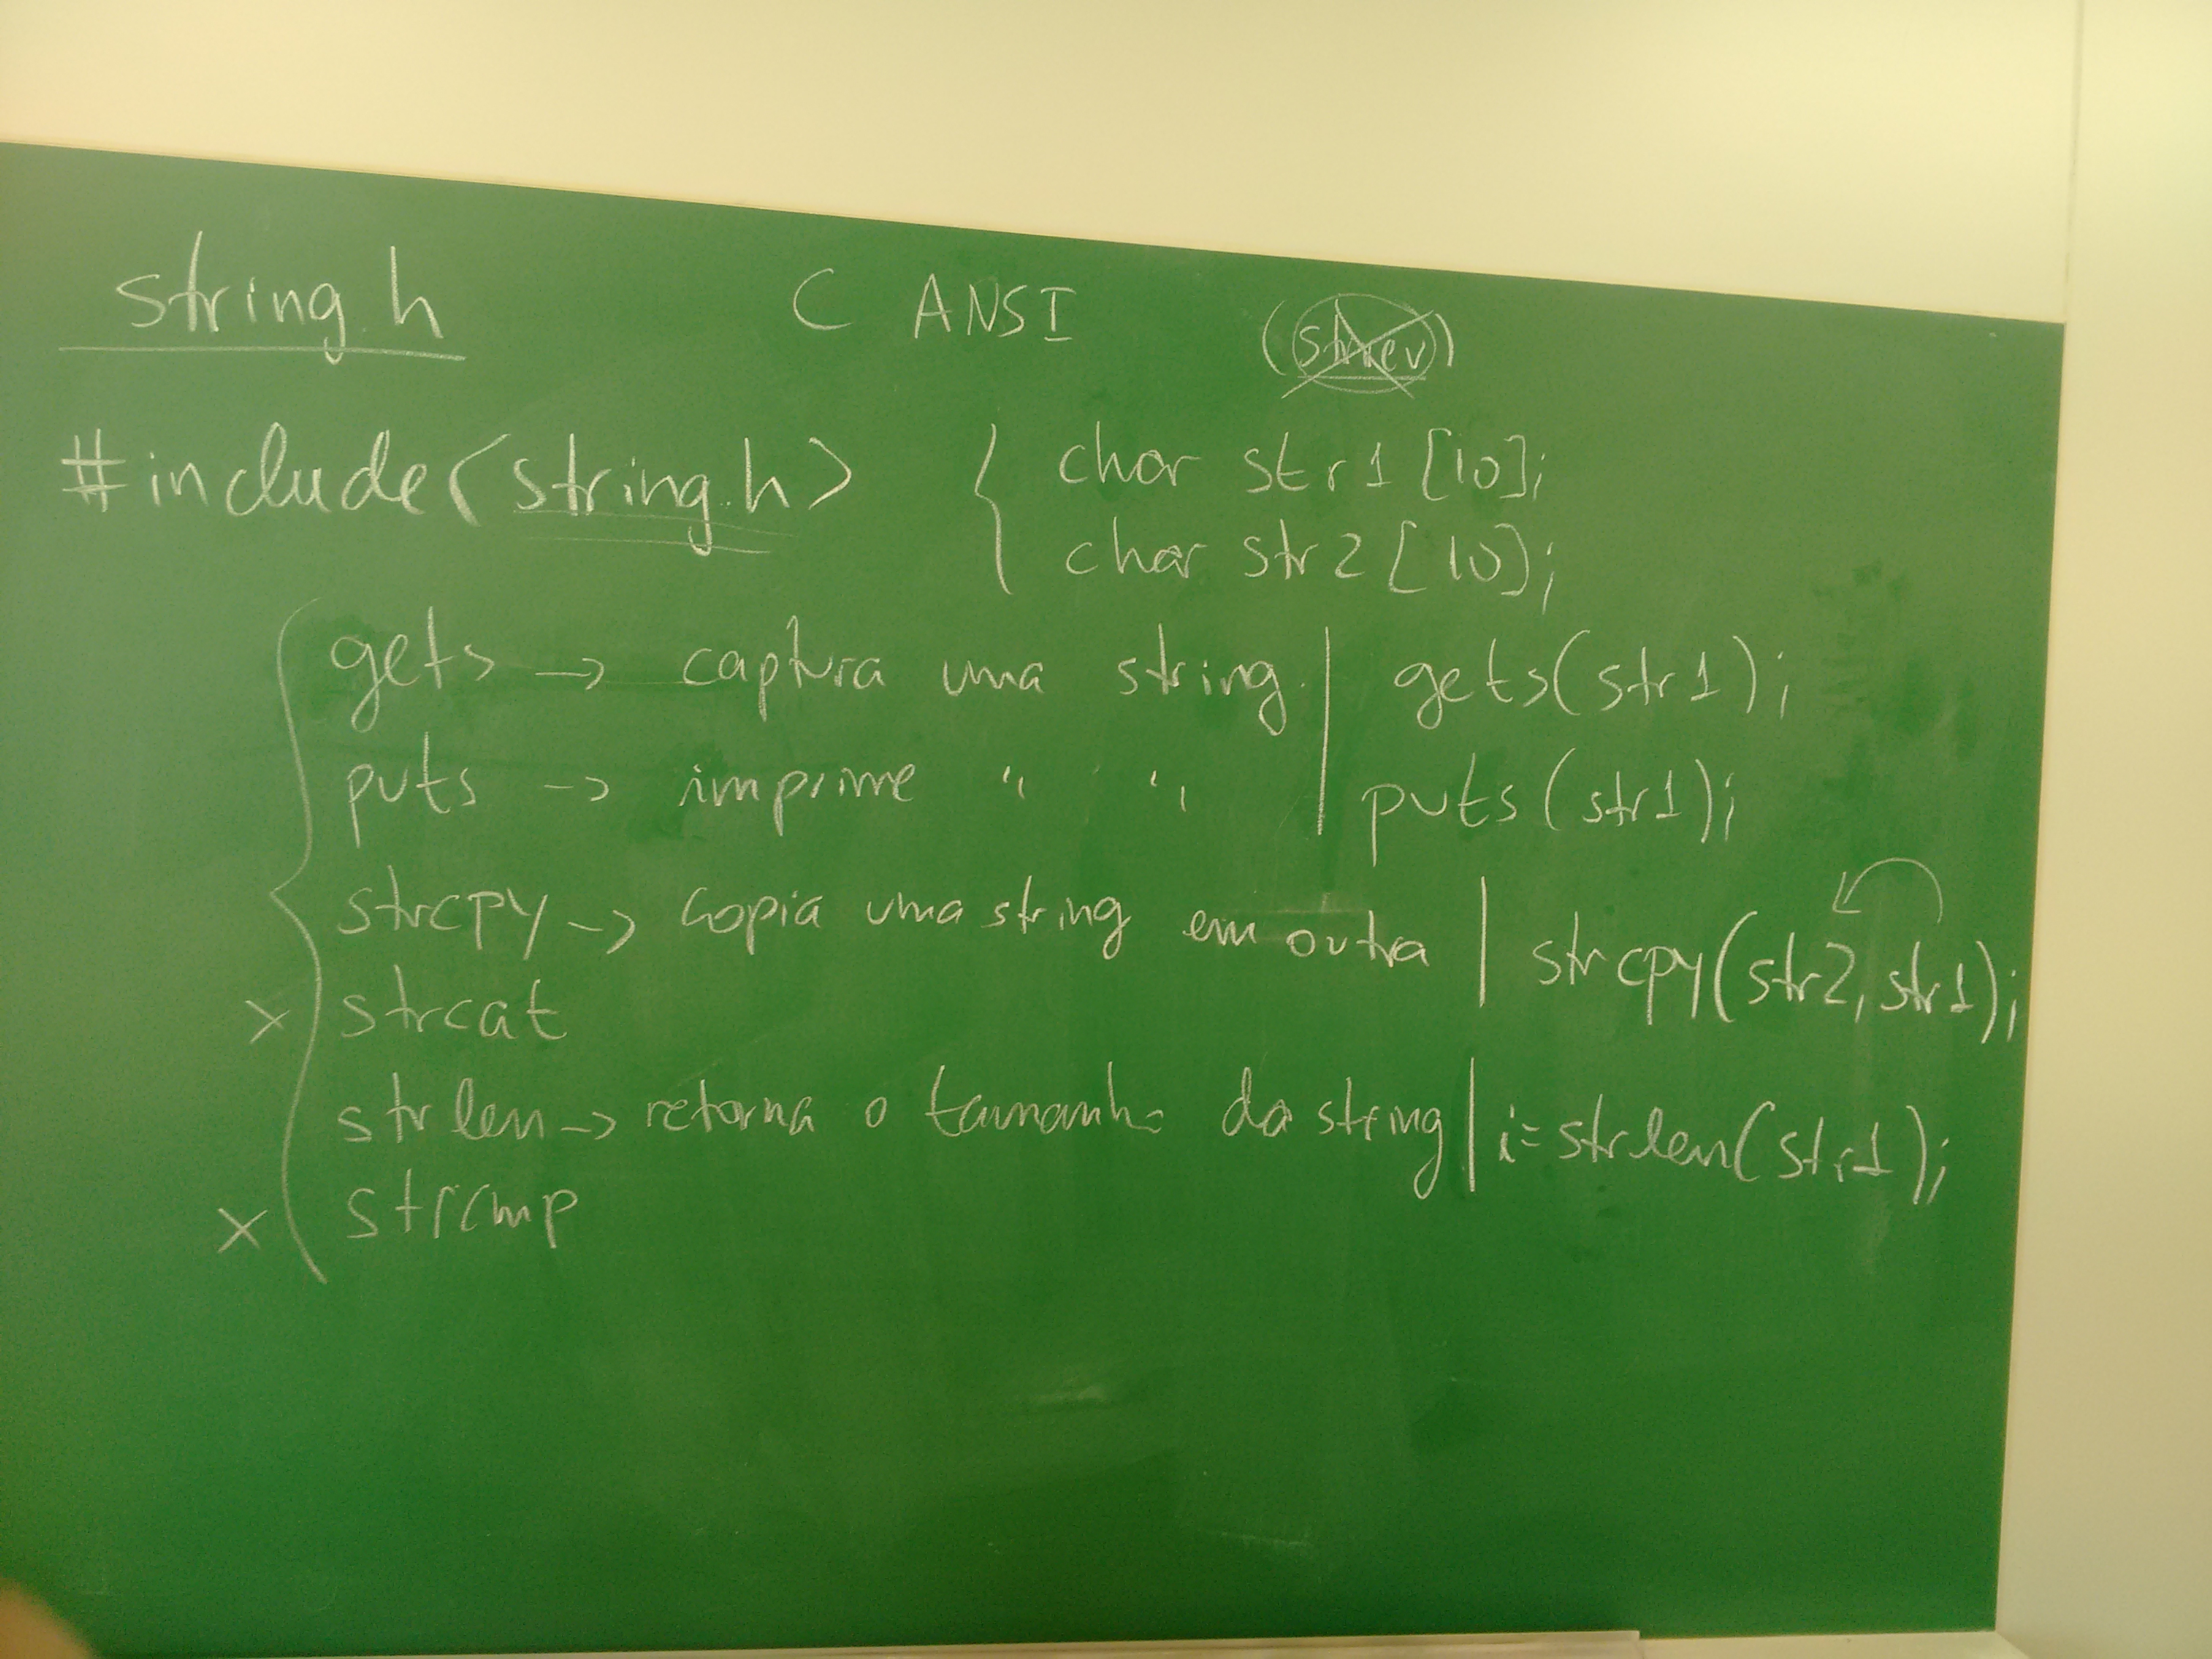 string.h C ANSI (strrev)
#include<string.h> { char str1 [10];
char str2 [10];
gets -> captura uma string. | gets(str1);
puts -> imprime " " | puts(str1);
strcpy -> copia uma string em outra | strcpy(str2, str1);
x strcat
strlen -> retorna o tamanho da string | i=strlen(str1);
x strcmp